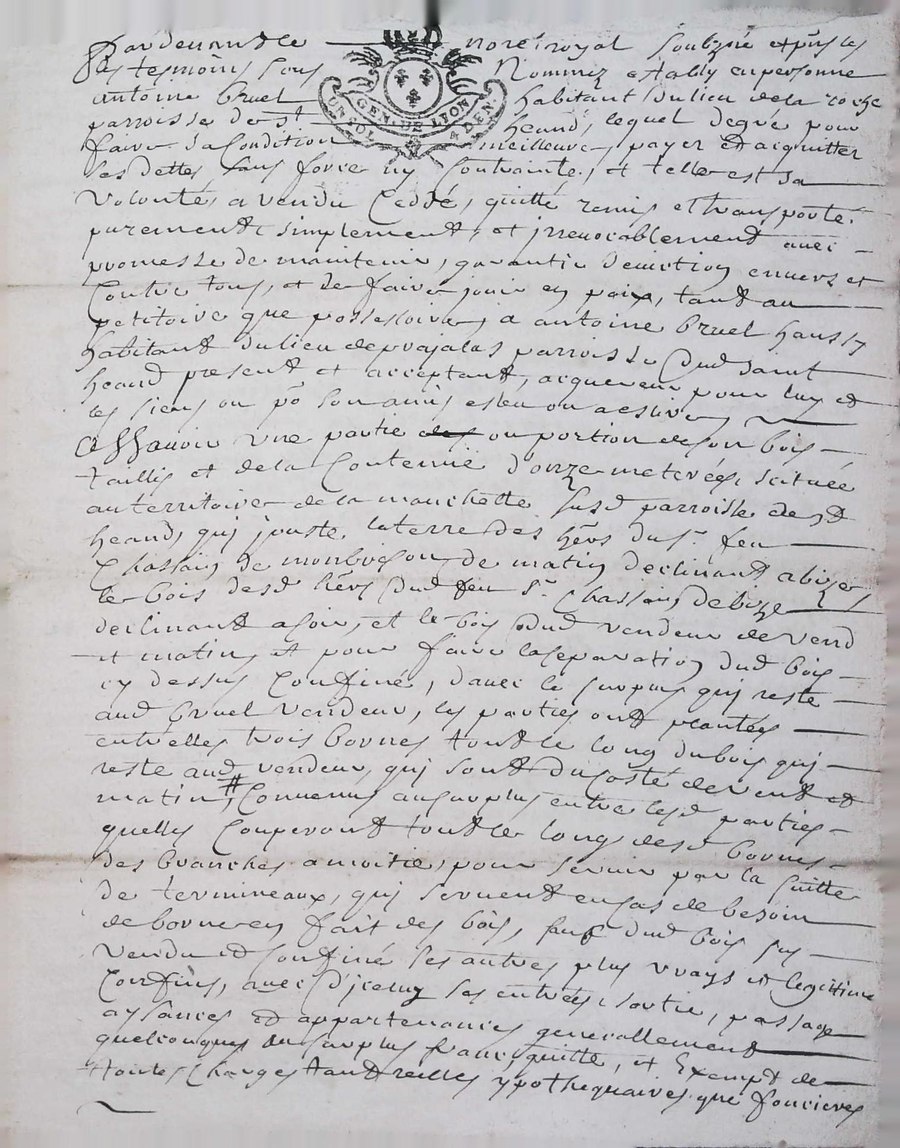 Pardevant le notre royal soubzné et pnts les
Les tesmoins sous Nommez estably en personne
antoine bruel habitant du lieu de la roche
GEN. DE LYON
UN SOL 4 DEN.
parroisse de st heand, lequel degré pour
faire sa condition meilleure, payer et acquitter
ses dettes sans force ny contrainte, et telle est sa
volonté, a vendu ceddé, quitté remis et transporté,
purement, simplement, et irrevocablement avec
promesse de maintenir, garantie d'eviction envers et
contre tous, et de faire jouir en paix, tant au
petitoire que possessoire, a antoine bruel
habitant du lieu de parroisse dud saint
heand present et acceptant, acquereur pour luy et
les siens ou po son amis esleu ou a eslire
assavoir une partie ou portion de son bois
taillis et de la contenue d'onze meterées, scituée
au territoire de la manchette susd parroisse de st
heand, qui jouste la terre des hers du sr. feu
Chassain de montbrison, de matin declinant a bize
le bois desd hers dud feu sr. Chassain, de bize
declinant a soir, et le bois dud vendeur de vend
et matin, et pour faire la separation dud bois
cy dessus confiné, d'avec le surplus qui reste
aud bruel vendeur, les parties ont plantées
entr'elles trois bornes tout le long du bois qui
reste aud vendeur, qui sont du costé de vent et
matin, # Convenus au surplus entre lesd parties
quelles couperont tout le long desd bornes
des branches a moitié, pour servir par la suitte
de termineaux, qui servent en cas de besoin
de bornes en fait des bois, sauf dud bois sus
vendu et confiné ses autres plus vrays et legitime
confins, avec d'iceluy ses entrées, sortie, passage
aysances et appartenances generallement
quelconques du surplus franc, quitte, et Exempt de
toutes charges tant reelles ypothequaires que foncieres